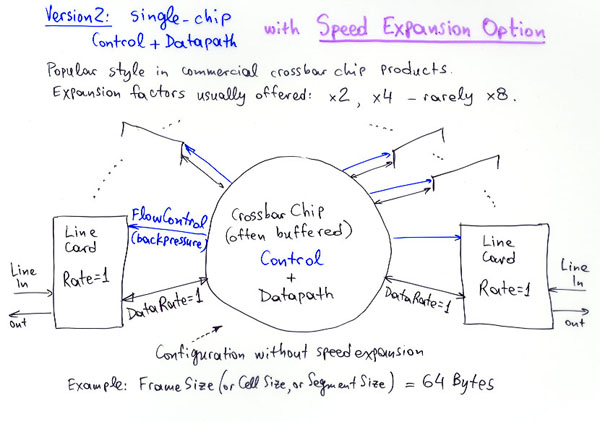 Version2: single-chip
Control + Datapath
with Speed Expansion Option
Popular style in commercial crossbar chip products.
Expansion factors usually offered: ×2, ×4 – rarely ×8.
FlowControl
(backpressure)
Crossbar Chip
(often buffered)
Control
+
Datapath
Line
Card
Rate=1
Line
In
Out
DataRate=1
Line
Card
Rate=1
Line
In
out
DataRate=1
Configuration without speed expansion
Example: Frame Size (or Cell Size, or Segment Size) = 64 Bytes